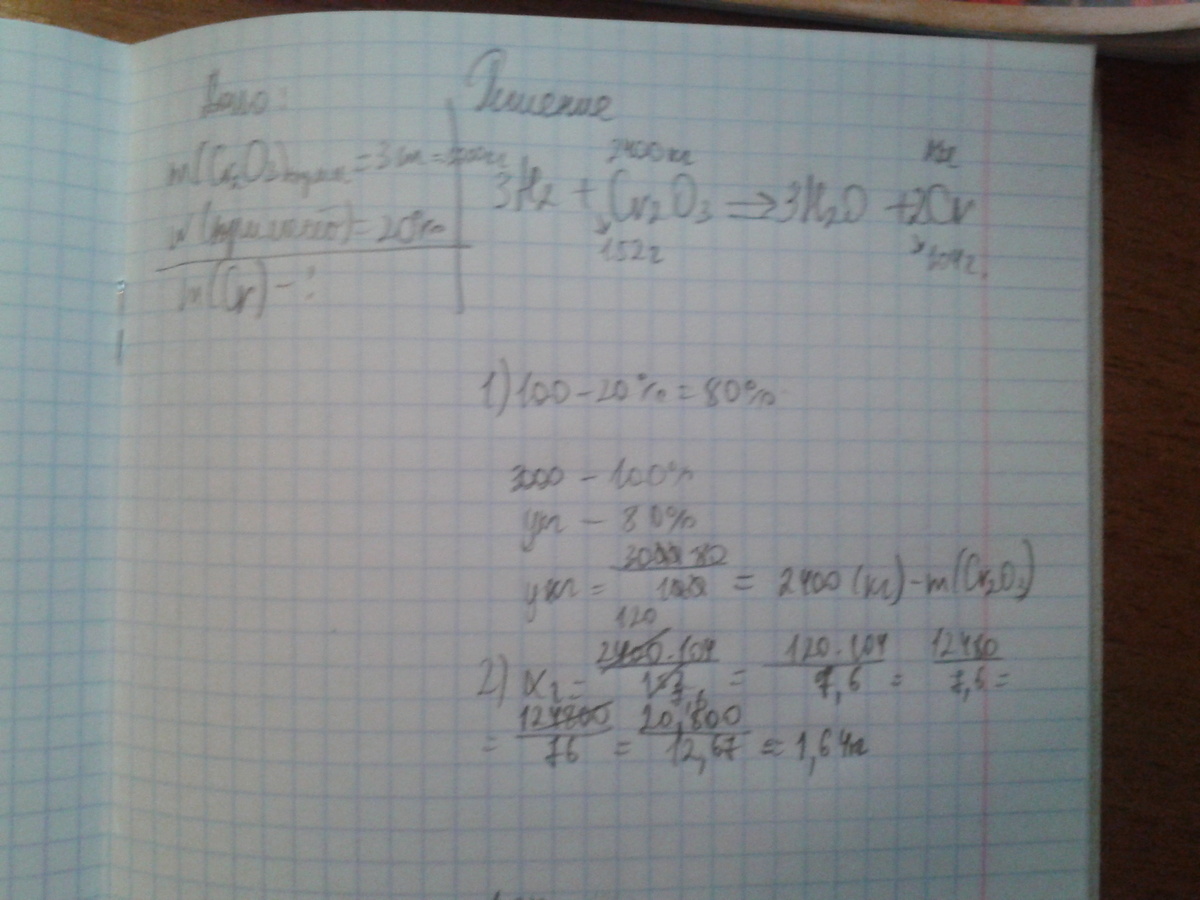 Дано:
m(Cr₂O₃)примес = 3т = 3000кг
W(примесей) = 20%
m(Cr) - ?
Решение
2400кг xкг
3H₂ + Cr₂O₃ => 3H₂O + 2Cr
152г 104г.
1) 100 - 20% = 80%
3000 - 100%
yкг - 80%
yкг = 3000·80 / 100 = 2400 (кг) - m(Cr₂O₃)
120
2) Xг = 2400·104 / 152 = 120·104 / 7,6 = 12480 / 7,6 =
= 124800 / 76 = 20,800 / 12,67 ≈ 1,64кг